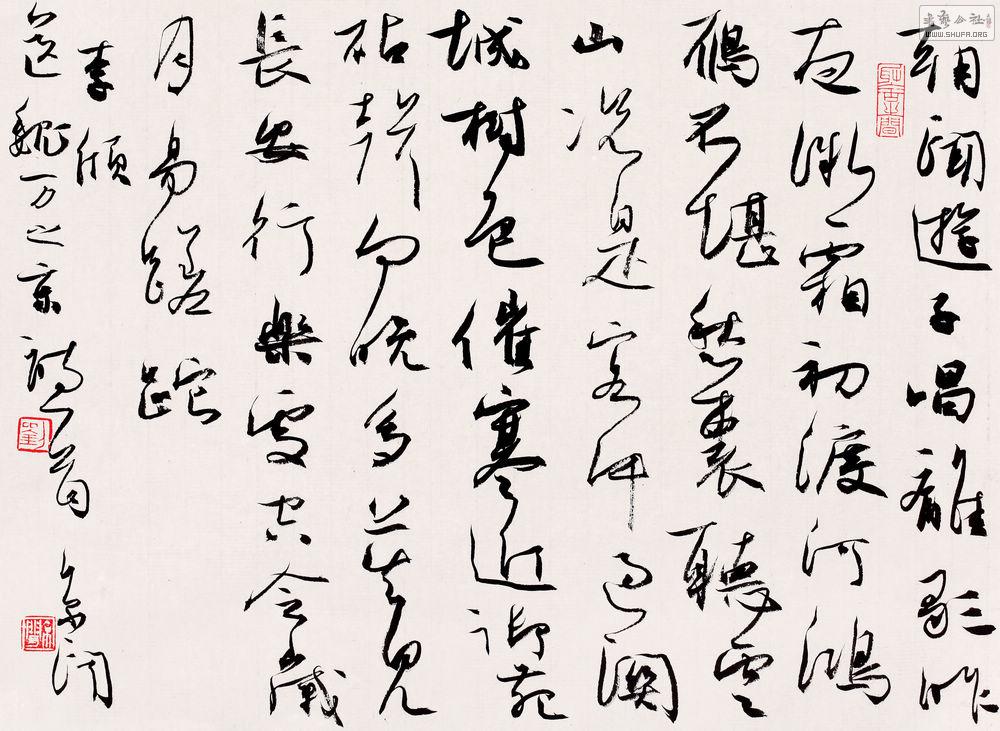 朝聞遊子唱離歌昨
夜微霜初渡河鴻
鴈不堪愁裏聽雲
山況是客中過關
城樹色催寒近御苑
砧聲向晚多莫見
長安行樂處空令歲
月易蹉跎
李頎
送魏万之京詩一首 京聞
劉
书艺公社
WWW.SHUFA.ORG